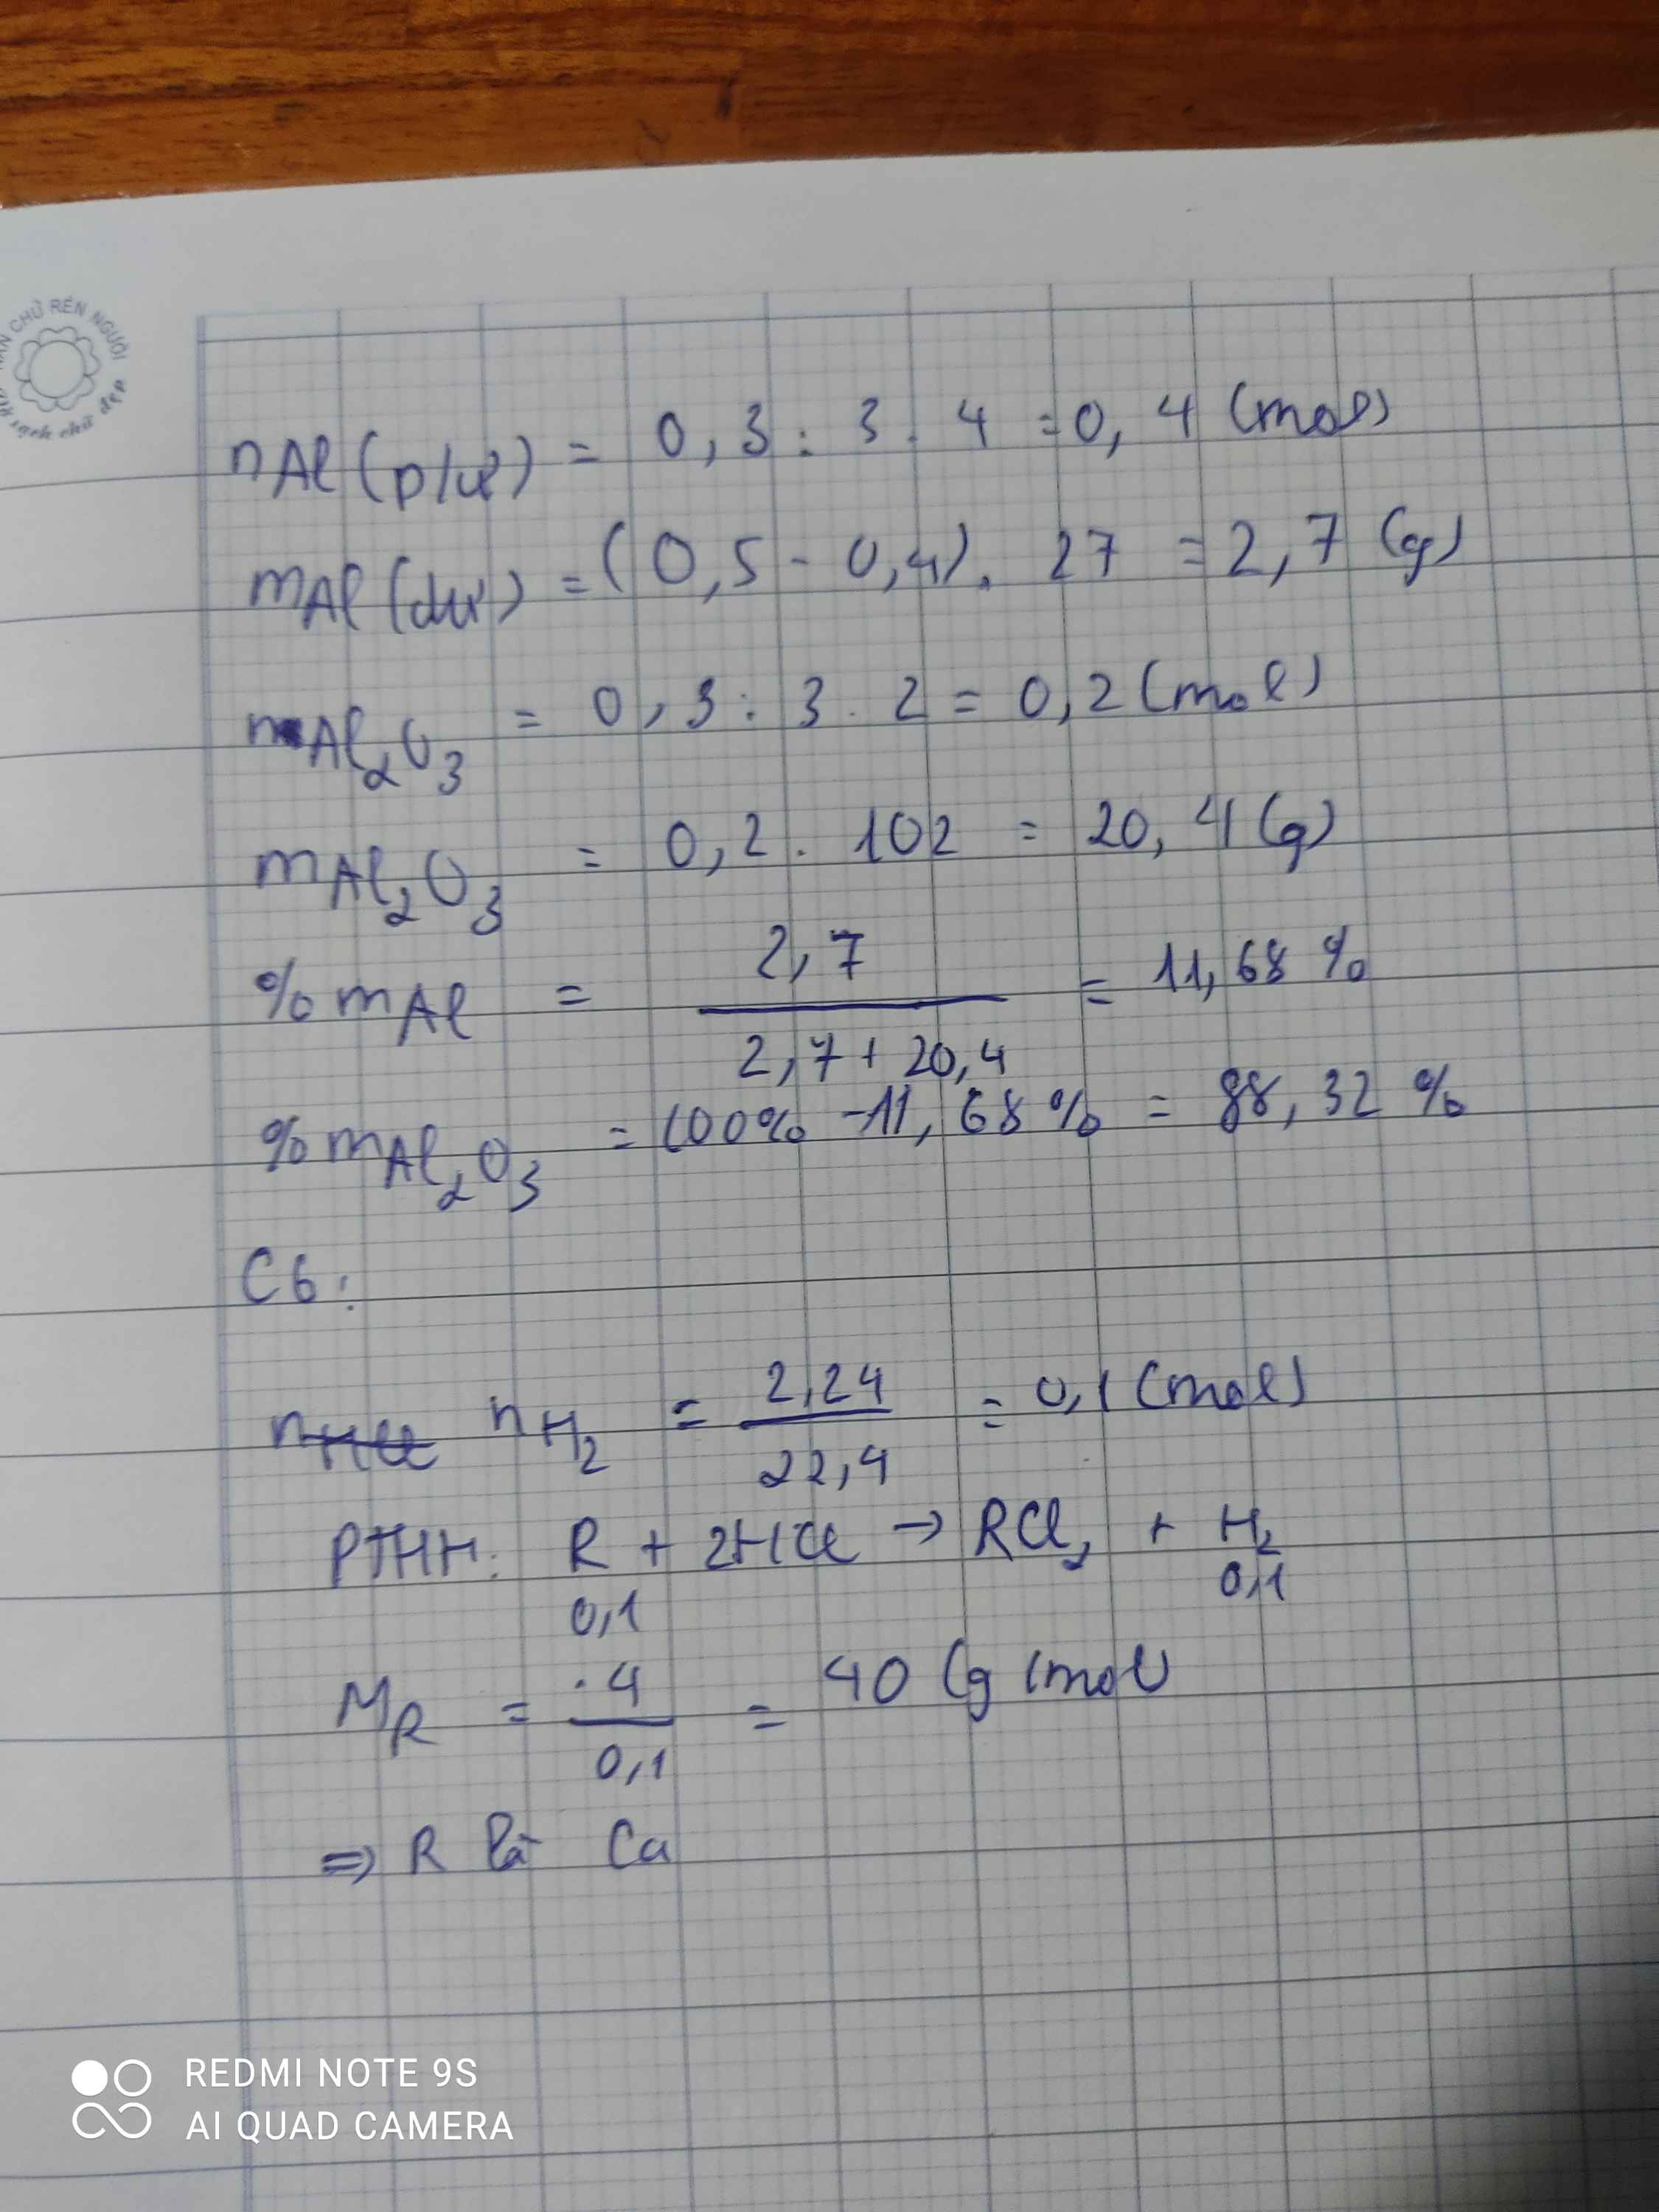 CHỮ RÈN NGƯỜI
sạch chữ đẹp
nAl(p/ư) = 0,3 : 3 . 4 = 0,4 (mol)
mAl(dư) = (0,5 - 0,4). 27 = 2,7 (g)
nAl2O3 = 0,3 : 3 . 2 = 0,2 (mol)
mAl2O3 = 0,2 . 102 = 20,4 (g)
%mAl = 2,7 / 2,7 + 20,4 = 11,68 %
%mAl2O3 = 100% - 11,68% = 88,32 %
C6:
nH2 = 2,24 / 22,4 = 0,1 (mol)
PTHH: R + 2HCl → RCl2 + H2
0,1 0,1
MR = 4 / 0,1 = 40 (g/mol)
=> R là Ca
REDMI NOTE 9S
AI QUAD CAMERA